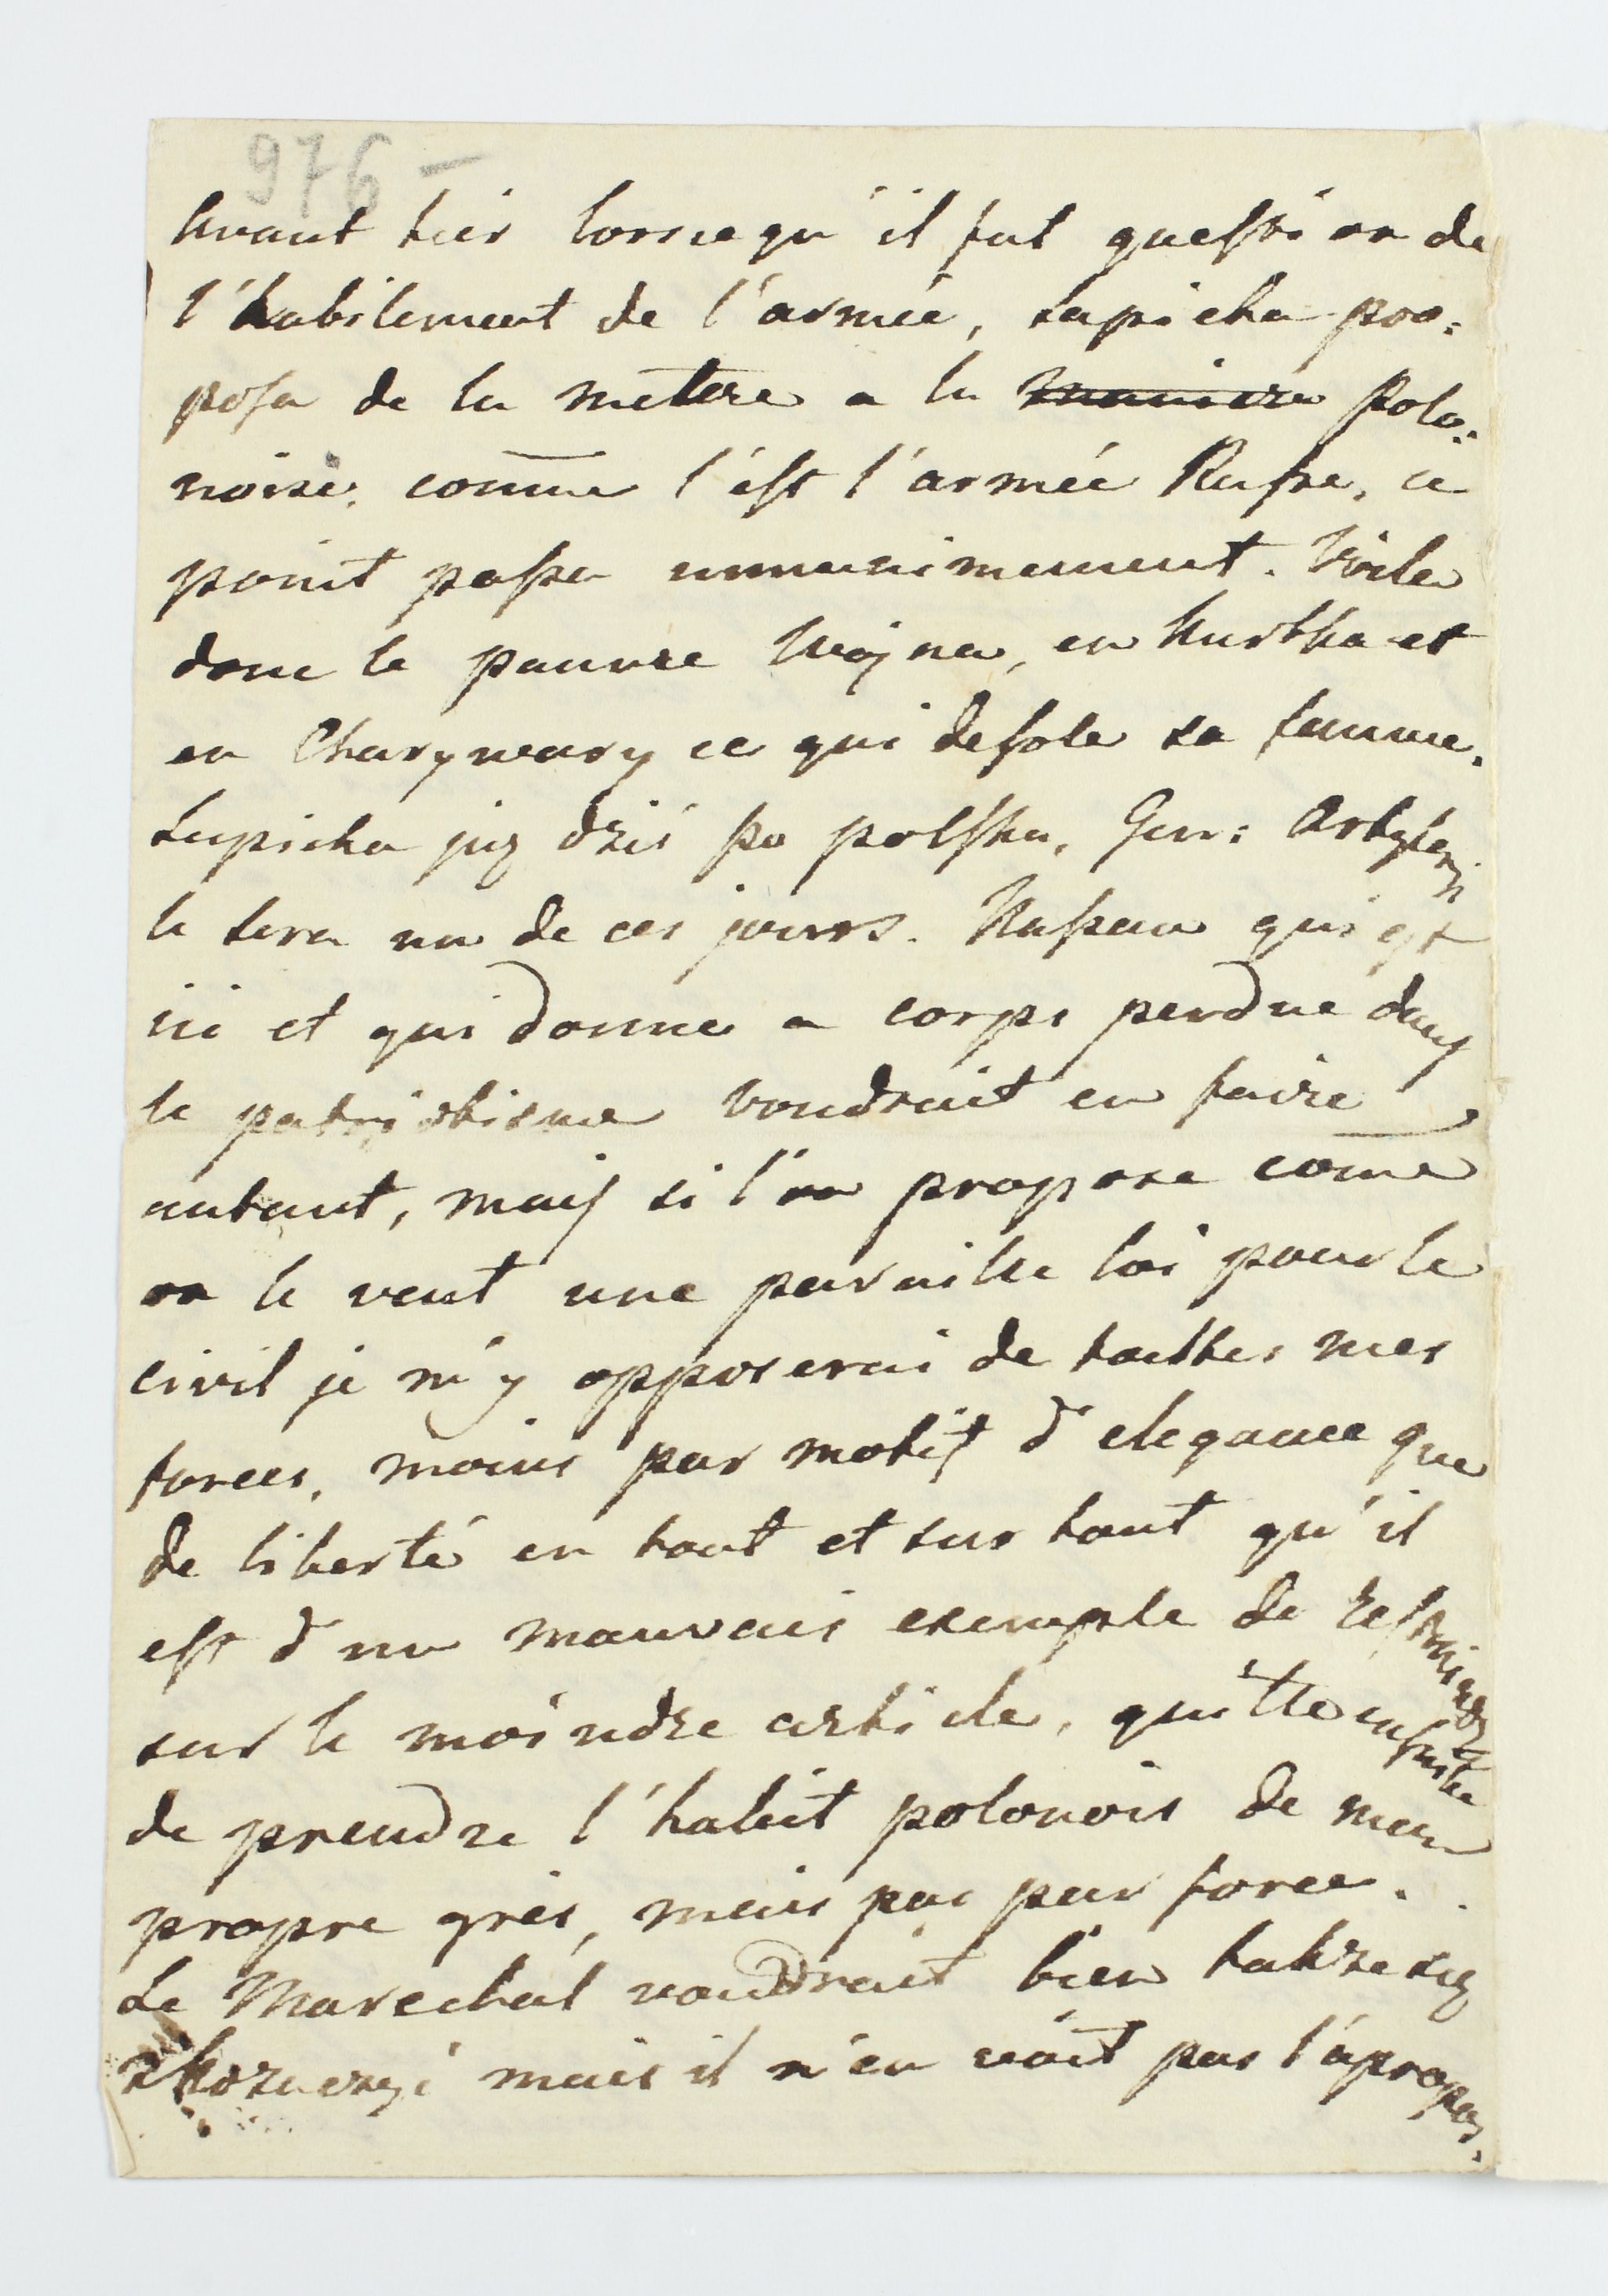 976 –
Avant hier lorsce qu'il fut question de
l'habilement de l'armée, Sapieha pro:
posa de la mettre a la maniere Polo:
noise, com̄e l'est l'armée Russe, ce
point passa unnanimement. Voila
donc le pauvre Wojna, en Kurtka et
en Charywary ce qui desole sa famme.
Sapieha juz dziś po polsku, Gen: Artyleryi
le sera un de ces jours. Kaspau qui est
ici et qui donne a corps perdue dans
le patriotisme voudrait en faire
autant, mais si l'on propose com̄e
on le veut une pareille loi pour le
civil je m'y opposerai de touttes mes
forces, moins par motif d'elegance que
de liberté en tout et sur tout qu'il
est d'un mauvais exemple de restreindre
sur le moindre article, quitte ensuite
de prendre l'habit polonois de mon
propre grès, mais pas par force.
Le Marechal voudrait bien takze się
mais il n'en voit pas l'apropos.